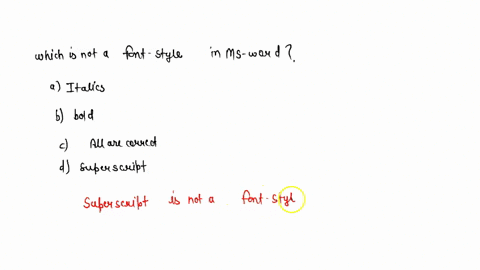 which is not a font-style in MS-word?
a) Italics
b) bold
c) All are correct
d) superscript
Superscript is not a font-styl